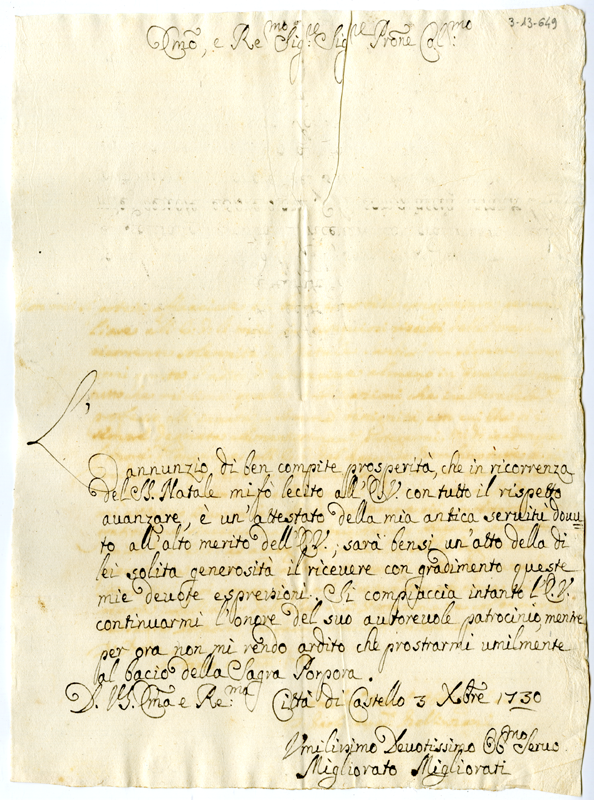 3-13-649
Emo, e Remo Sigre Sigre Prone Colmo
L'annunzio, di ben compite prosperità, che in ricorrenza
del SS. Natale mi fò lecito all'E.V. con tutto il rispetto
avanzare, è un'attestato della mia antica servitù dovu=
to all'alto merito dell'E.V., sarà bensì un'atto della di
lei solita generosità il ricevere con gradimento queste
mie devote espressioni. Si compiaccia intanto l'E.V.
continuarmi l'onore del suo autorevole patrocinio, mentre
per ora non mi rendo ardito che prostrarmi umilmente
al bacio della Sagra Porpora.
D. V. Ema e Rema Città di Castello 3 Xbre 1730
Umilissimo Devotissimo Obmo Servo
Migliorato Migliorati